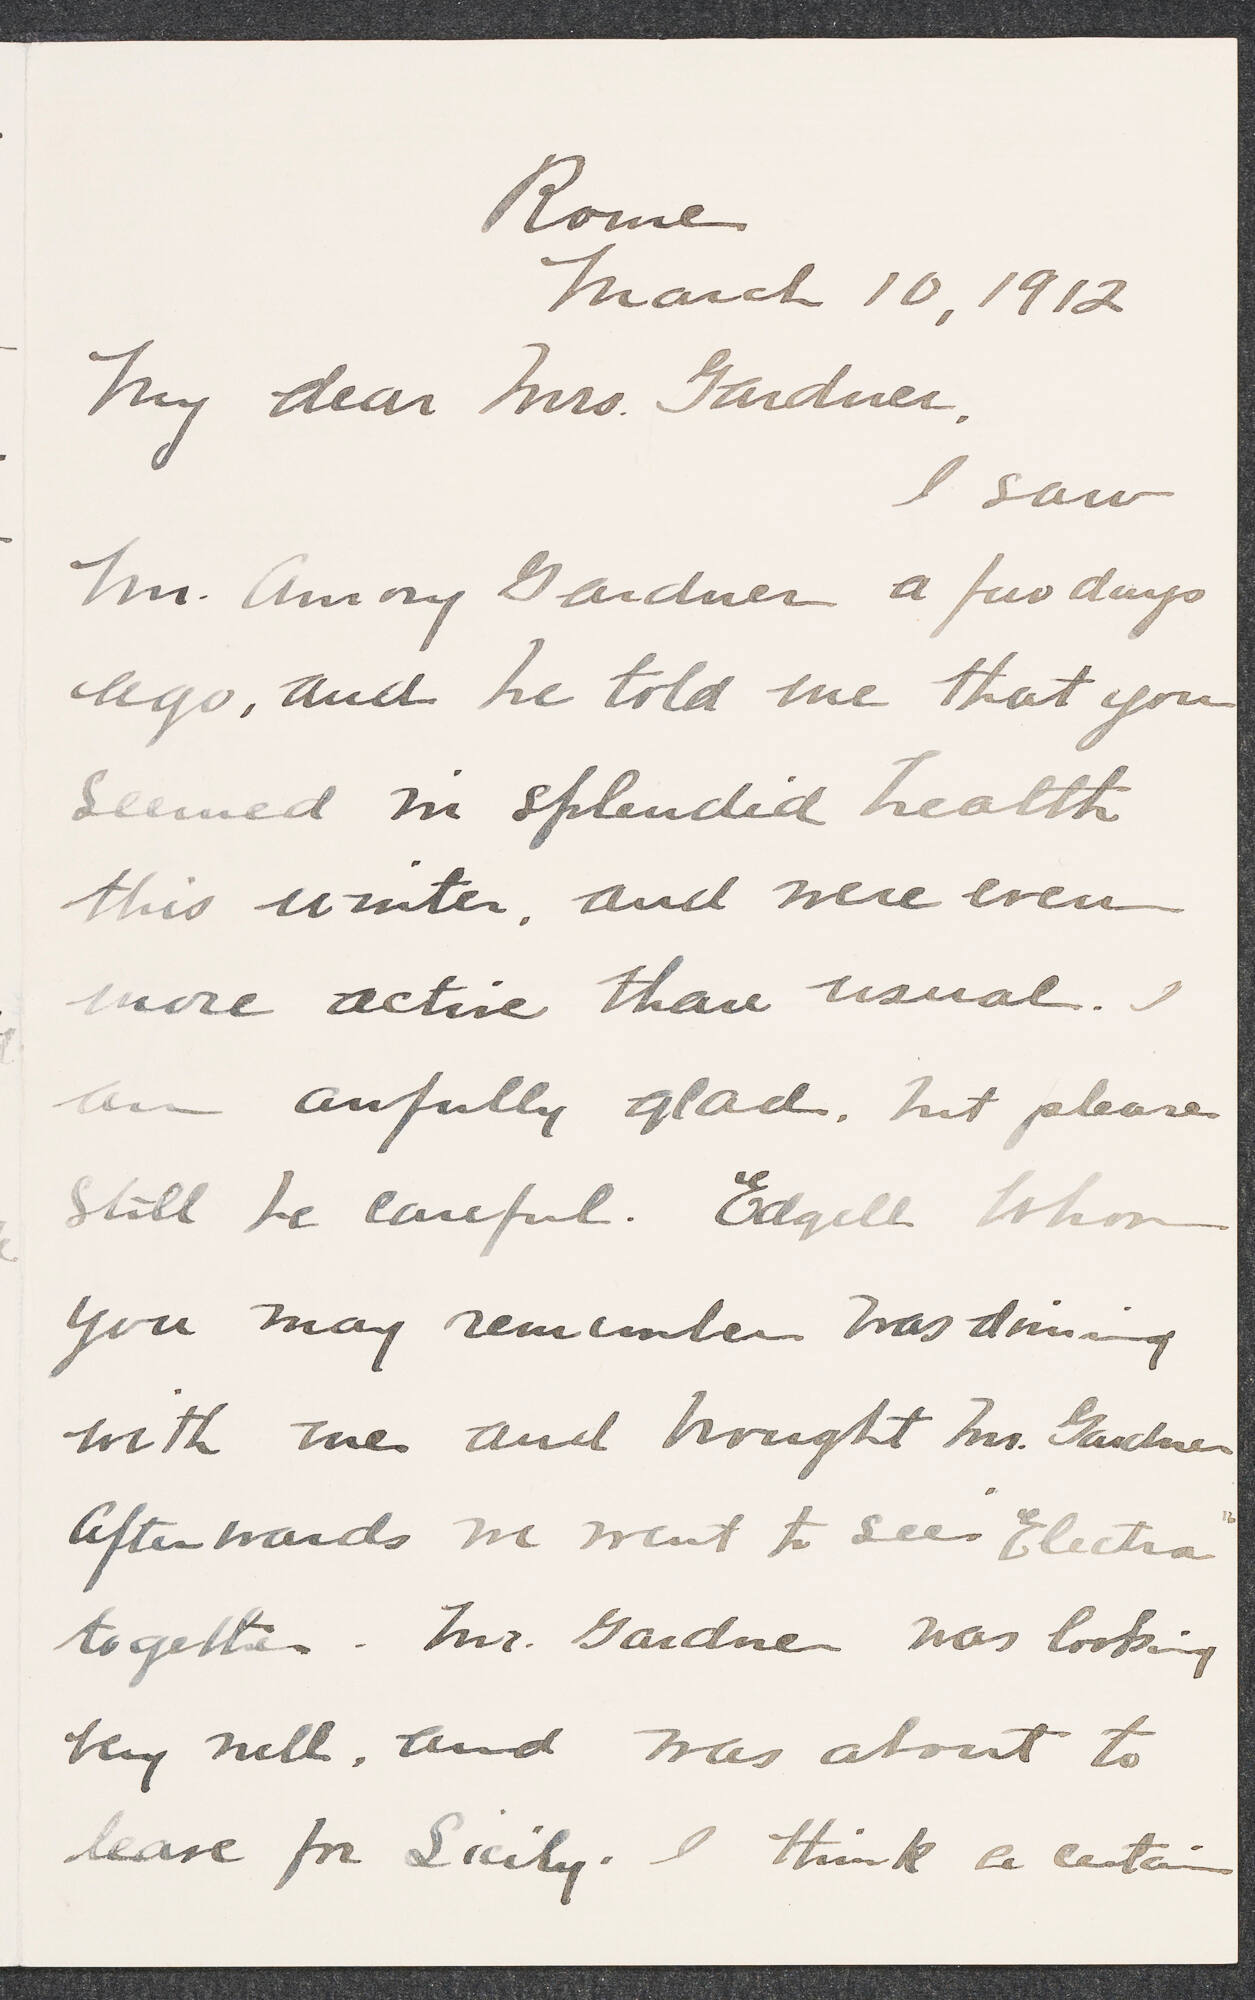 Rome
March 10, 1912
My dear Mrs. Gardner,
I saw
Mr. Amory Gardner a few days
ago, and he told me that you
seemed in splendid health
this winter, and were even
more active than usual. I
am awfully glad, but please
still be careful. Edgell whom
you may remember was dining
with me and brought Mr. Gardner
Afterwards we went to see "Electra"
together. Mr. Gardner was looking
very well, and was about to
leave for Sicily. I think a certain